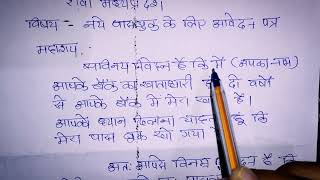 विषय - नये पासबुक के लिए आवेदन पत्र
महाशय,
सविनय निवेदन है कि मैं (आपका नाम)
आपके बैंक का खाताधारी दो वर्षों
से आपके बैंक में मेरा है।
आपको ध्यान चाहता हूं कि
मेरा पास बुक खो गया
अतः आपसे विनम्र है कि